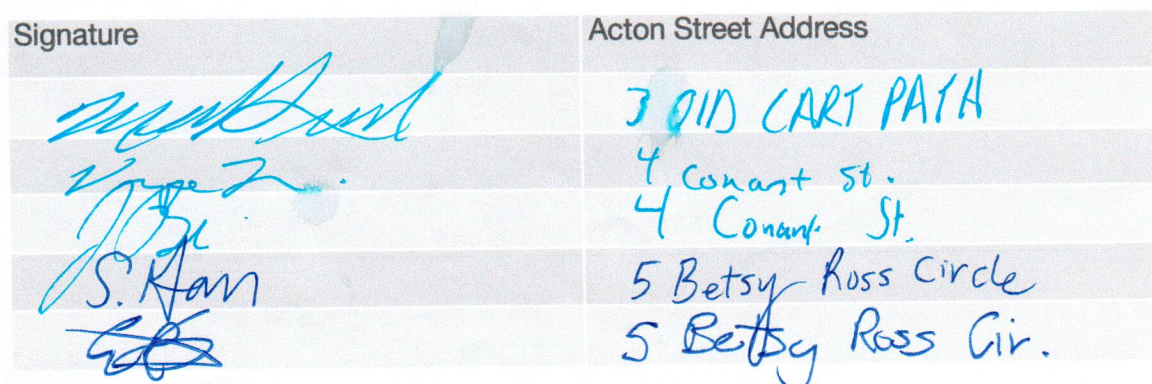 Signature Acton Street Address
3 Old CART PATH
4 Conant St.
4 Conant St.
S. Han 5 Betsy Ross Circle
5 Betsy Ross Cir.